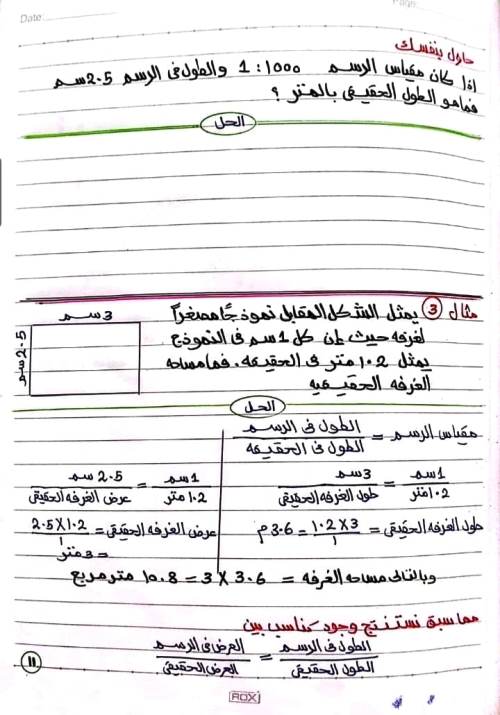 Date:
Page:
حاول بنفسك
اذا كان مقياس الرسم 1:1000 والطول فى الرسم 2.5 سم
فما هو الطول الحقيقى بالمتر ؟
الحل
مثال 3 يمثل الشكل المقابل نموذجًا مصغراً
لغرفه حيث ان كل 1 سم فى النموذج
يمثل 1.2 متر فى الحقيقه. فما مساحه
الغرفه الحقيقيه
3 سم
2.5 سم
الحل
مقياس الرسم = الطول فى الرسم / الطول فى الحقيقه
1 سم / 1.2 متر = 3 سم / طول الغرفه الحقيقى
طول الغرفه الحقيقى = 1.2 X 3 / 1 = 3.6 م
1 سم / 1.2 متر = 2.5 سم / عرض الغرفه الحقيقى
عرض الغرفه الحقيقى = 2.5 X 1.2 / 1
= 3 متر
وبالتالى مساحه الغرفه = 3.6 X 3 = 10.8 متر مربع
مما سبق نستنتج وجود تناسب بين
الطول فى الرسم / الطول الحقيقى = العرض فى الرسم / العرض الحقيقى
11
ROX